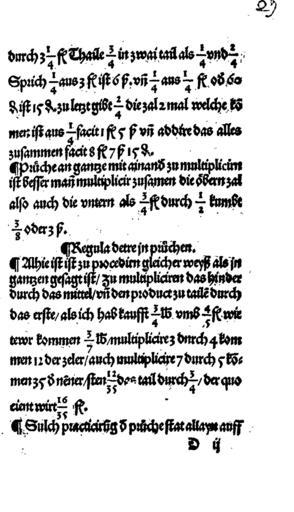 durch 3 1/4 fl Thaile 3/4 in zwai tail als 1/4 vnd 2/4
Sprich 1/4 aus 3 fl ist 6 ß. vñ 1/4 aus 1/4 fl od 60
₰ ist 15 ₰. zu letzt gibt 2/4 die zal 2 mal welche kõ
men ist aus 1/4 facit 1 fl 5 ß vñ addire das alles
zusammen facit 8 fl 7 ß 15 ₰.
¶ Prüche an gantze mit ainand zu multiplicirn
ist besser man multiplicir zusamen die öbern zal
also auch die vntern als 3/4 fl durch 1/2 kumbt
3/8 oder 3 ß.
¶ Regula detre in prüchen.
¶ Alhie ist ist zu procedirn gleicher weyß als in
gantzen gesagt ist / Zu multipliciren das hinder
durch das mittel / vñ den product zu tailē durch
das erste / als ich hab kaufft 3/4 lb vmb 4/5 fl wie
tewr kommen 3/7 lb / multiplicire 3 durch 4 kom
men 12 der zeler / auch multiplicire 7 durch 5 kõ-
men 35 d nēner / 12/35 tail durch 3/4 / der quo
cient wirt 16/35 fl.
¶ Sulch practicirūg d prüche stat allayn auff
D ij